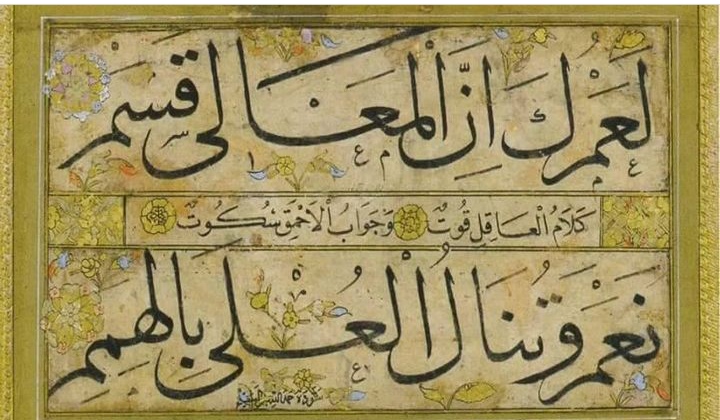 لَعَمْرُكَ اِنَّ الْمَعَالى قِسَمْ
كَلَامُ الْعَاقِلِ قُوتٌ وَجَوَابُ الْاَحْمَقِ سُكُوتٌ
نَعَمْ وَتُنَالُ الْعُلٰى بِالْهِمَمِ